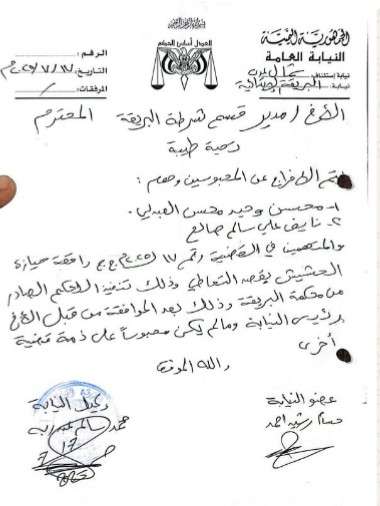 الجمهورية اليمنية
النيابة العامة
نيابة استئناف: شمال عدن
نيابة: البريقة الابتدائية
العدل أساس الحكم
الرقم:
التاريخ: ١٧ / ٧ /
المرفقات: /
الأخ / مدير قسم شرطة البريقة المحترم
تحية طيبة
يتم الإفراج عن المحبوسين وهم:
١- محسن وحيد محسن العبدلي.
٢- نايف علي سالم صالح
والمتهمين في القضية رقم ١٧ ج.ج واقعة حيازة
الحشيش بقصد التعاطي وذلك تنفيذ للحكم الصادر
من محكمة البريقة وذلك بعد الموافقة من قبل الأخ
رئيس النيابة ومالم يكن محبوساً على ذمة قضية
أخرى
والله الموفق
عضو النيابة
حسام رشيد احمد
وكيل النيابة
محمد سالم